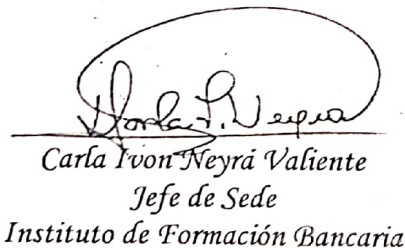 Carla I. Neyra
Carla Ivon Neyrá Valiente
Jefe de Sede
Instituto de Formación Bancaria